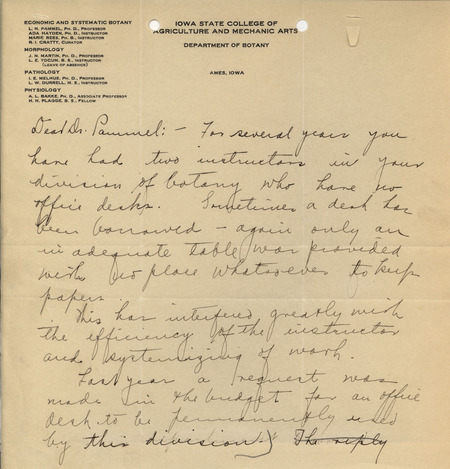 ECONOMIC AND SYSTEMATIC BOTANY
L. H. PAMMEL, PH. D., PROFESSOR
ADA HAYDEN, PH. D., INSTRUCTOR
R. I. CRATTY, CURATOR
MORPHOLOGY
J. N. MARTIN, PH. D., PROFESSOR
L. E. YOCUM, B. S., INSTRUCTOR
(LEAVE OF ABSENCE)
PATHOLOGY
I. E. MELHUS, PH. D., PROFESSOR
L. W. DURRELL, M. S., INSTRUCTOR
PHYSIOLOGY
A. L. BAKKE, PH. D., ASSOCIATE PROFESSOR
H. H. PLAGGE, B. S., FELLOW
IOWA STATE COLLEGE OF
AGRICULTURE AND MECHANIC ARTS
DEPARTMENT OF BOTANY
AMES, IOWA
Dear Dr. Pammel: – For several years you
have had two instructors in your
division of botany who have no
office desks. Sometimes a desk has
been borrowed – again only an
in adequate table was provided
with no place whatsoever to keep
papers.
This has interfered greatly with
the efficiency of the instructor
and systemizing of work.
Last year a request was
made in the budget for an office
desk to be permanently used
by this division.) The reply